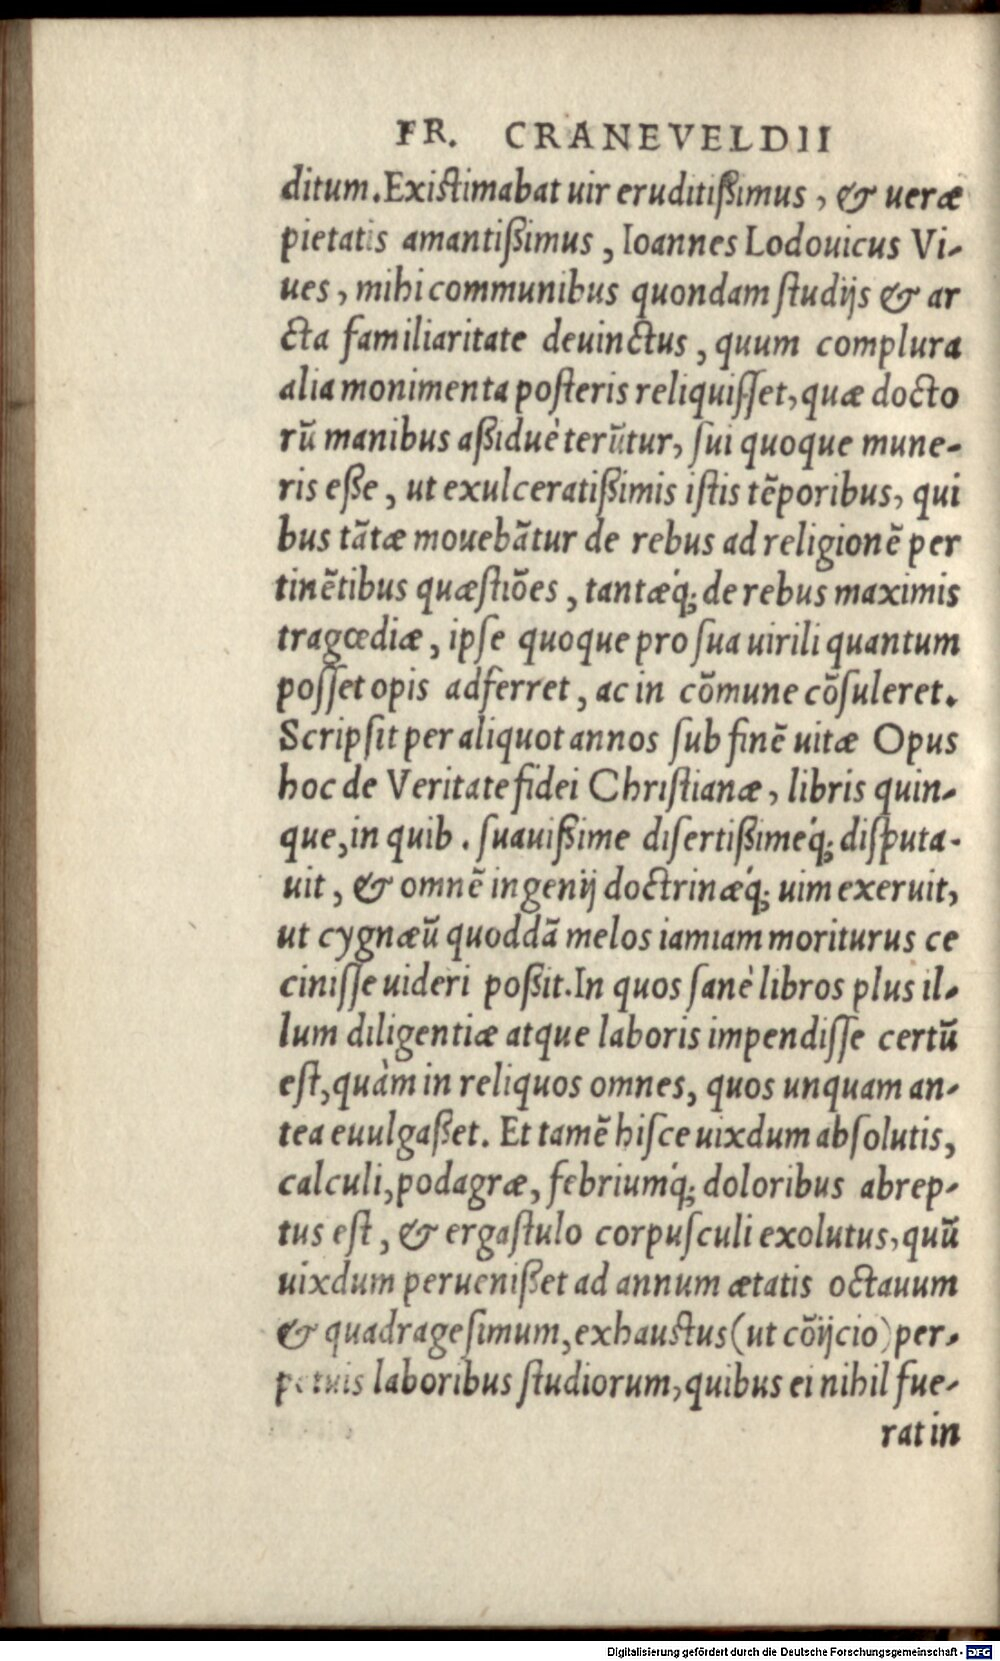 FR. CRANEVELDII
ditum. Existimabat uir eruditißimus, & ueræ
pietatis amantißimus, Ioannes Lodouicus Vi-
ues, mihi communibus quondam studijs & ar
cta familiaritate deuinctus, quum complura
alia monimenta posteris reliquisset, quæ docto
rū manibus aßiduè terūtur, sui quoque mune-
ris eße, ut exulceratißimis istis tēporibus, qui
bus tātæ mouebātur de rebus ad religionē per
tinētibus quæstiōes, tantæq́; de rebus maximis
tragœdiæ, ipse quoque pro sua uirili quantum
posset opis adferret, ac in cōmune cōsuleret.
Scripsit per aliquot annos sub finē uitæ Opus
hoc de Veritate fidei Christianæ, libris quin-
que, in quib. suauißime disertißimeq́; disputa-
uit, & omnē ingenij doctrinæq́; uim exeruit,
ut cygnæū quoddā melos iamiam moriturus ce
cinisse uideri poßit. In quos sanè libros plus il-
lum diligentiæ atque laboris impendisse certū
est, quàm in reliquos omnes, quos unquam an-
tea euulgaßet. Et tamē hisce uixdum absolutis,
calculi, podagræ, febriumq́; doloribus abrep-
tus est, & ergastulo corpusculi exolutus, quū
uixdum perueniße​t ad annum ætatis octauum
& quadragesimum, exhaustus (ut cōijcio) per-
petuis laboribus studiorum, quibus ei nihil fue-
rat in
Digitalisierung gefördert durch die Deutsche Forschungsgemeinschaft - DFG